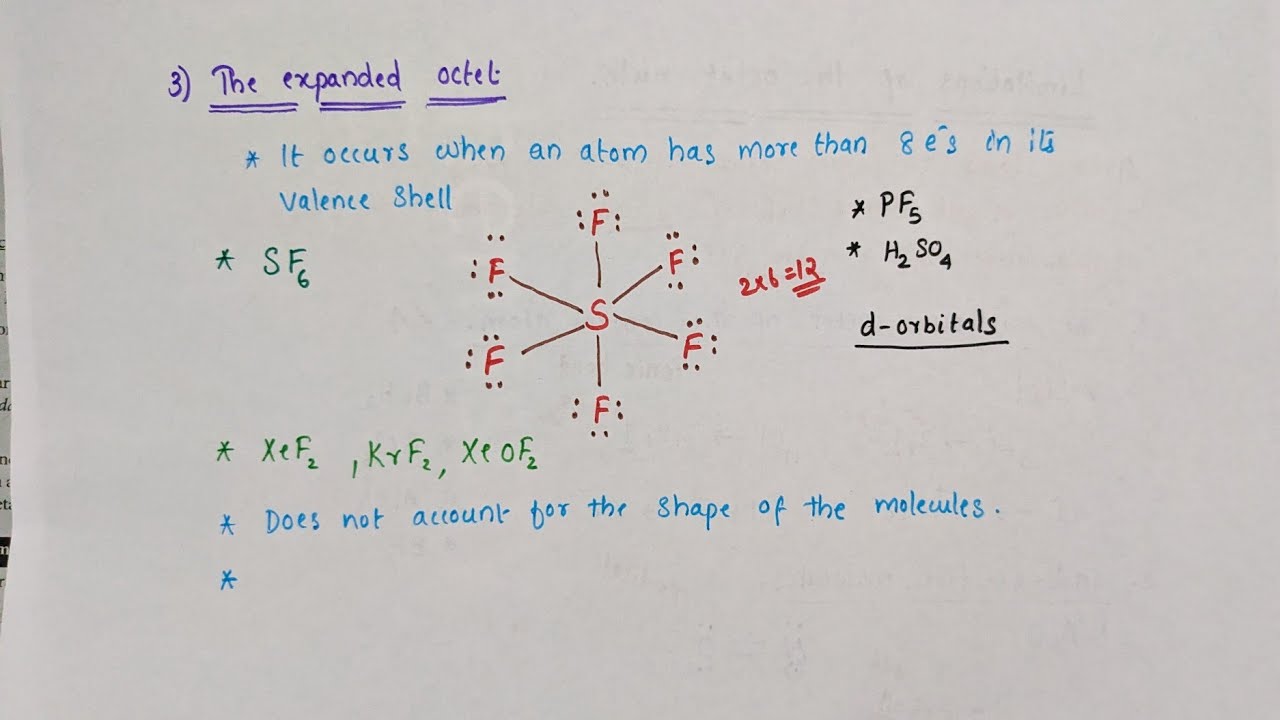 3) The expanded octet
* It occurs when an atom has more than 8 e⁻s in its
valence shell
* SF₆
:F:
:F
F:
S
2x6=12
:F
F:
:F:
* PF₅
* H₂SO₄
d-orbitals
* XeF₂, KrF₂, XeOF₂
* Does not account for the shape of the molecules.
*